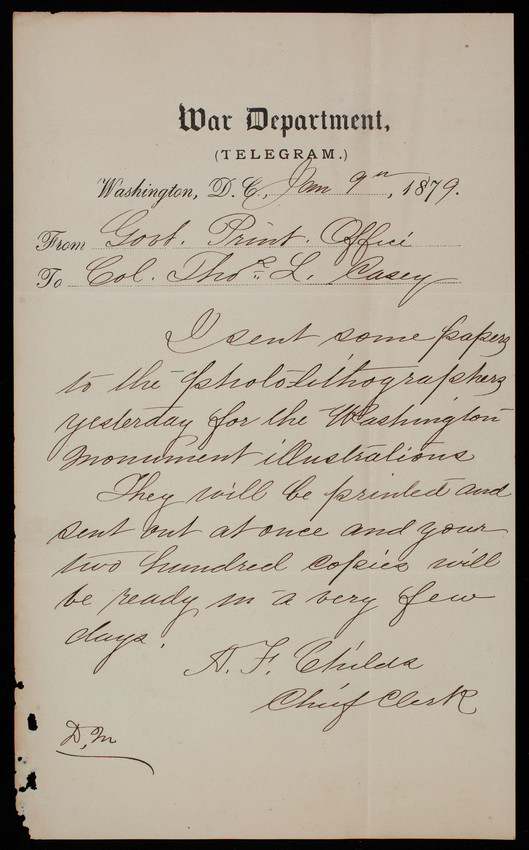 War Department,
(TELEGRAM.)
Washington, D. C., Jan 9th, 1879.
From Govt. Print. Office
To Col. Thos. L. Casey
I sent some papers
to the photo-lithographers
yesterday for the Washington
Monument illustrations
They will be printed and
sent out at once and your
two hundred copies will
be ready in a very few
days.
A. F. Childs
Chief Clerk
D, M